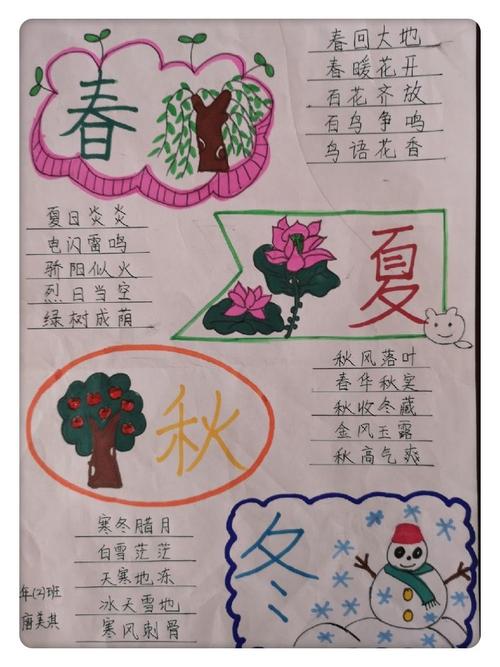 春
春回大地
春暖花开
百花齐放
百鸟争鸣
鸟语花香
夏日炎炎
电闪雷鸣
骄阳似火
烈日当空
绿树成荫
夏
秋
秋风落叶
春华秋实
秋收冬藏
金风玉露
秋高气爽
寒冬腊月
白雪茫茫
天寒地冻
冰天雪地
寒风刺骨
冬
年(2)班
唐美淇